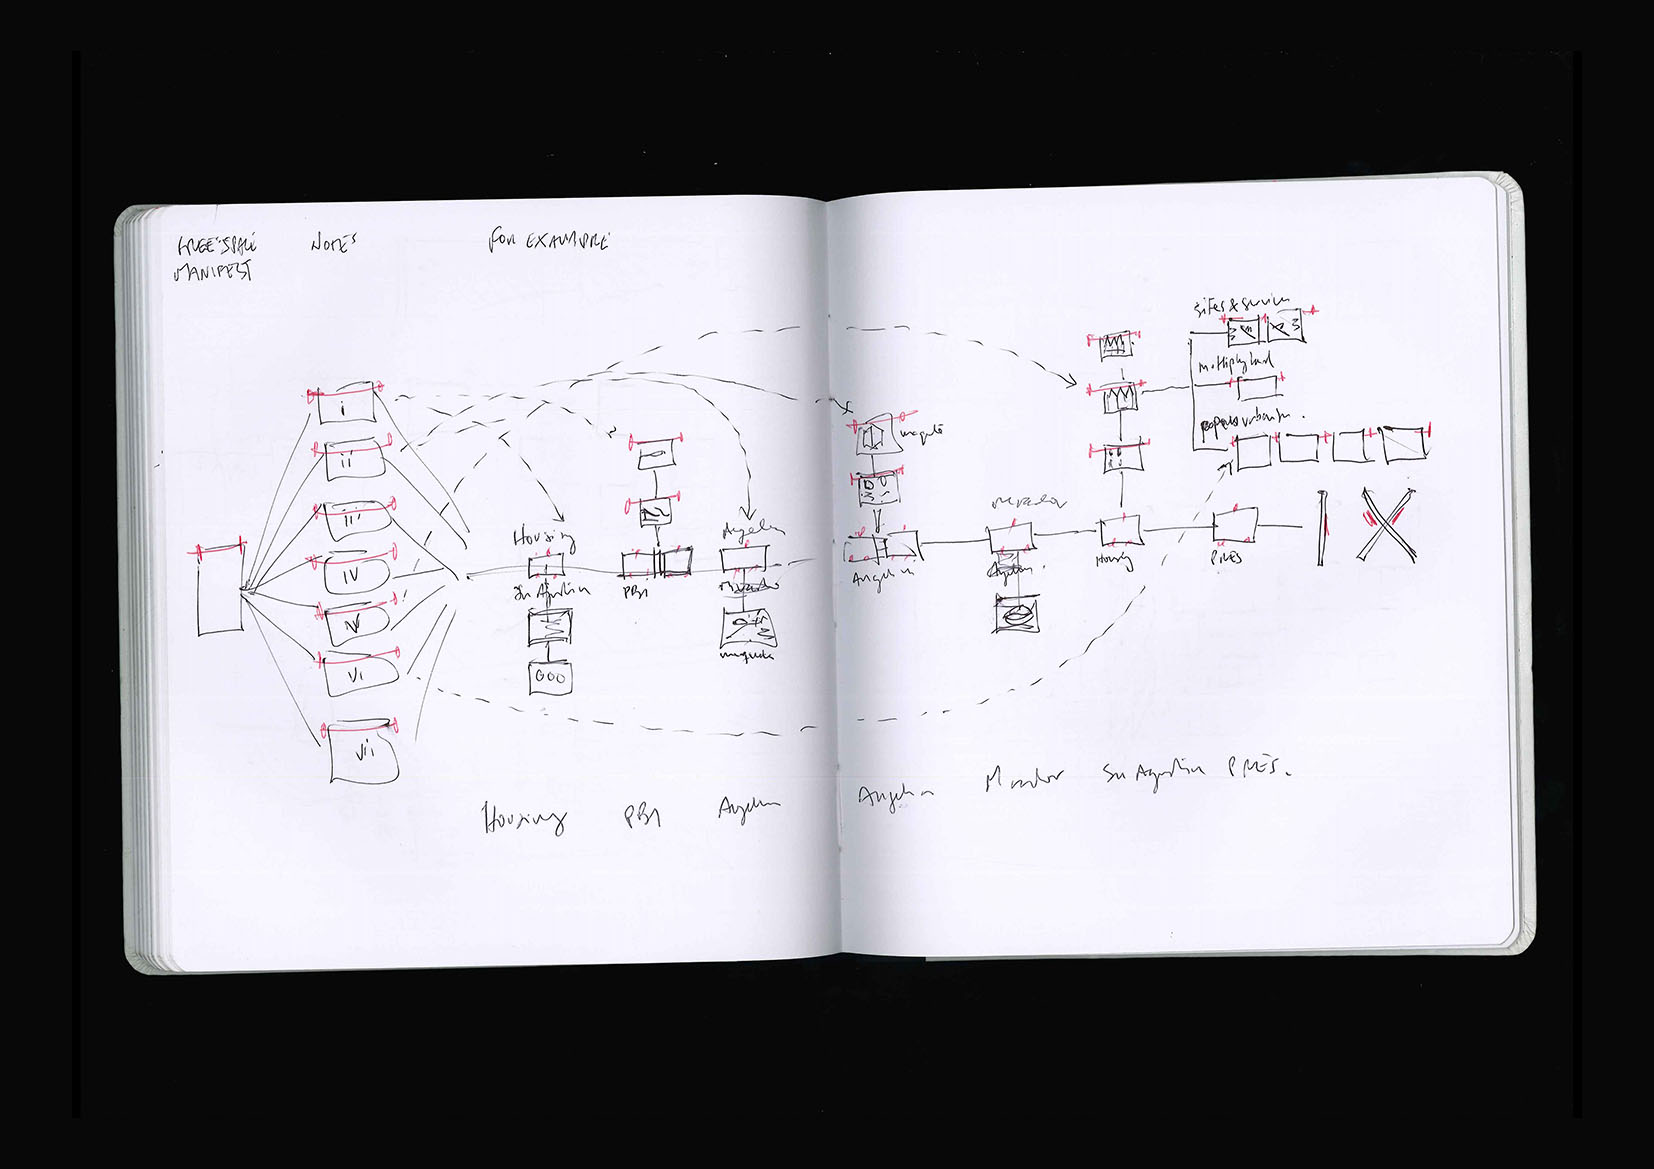 FREESPACE
MANIFEST
NOTES
FOR EXAMPLE
i
ii
iii
IV
V
Vi
Vii
Housing
San Agustin
600
PB1
Angelin
maqueta
maqueta
Angelin
Mirador
Housing
PRES
sites & services
multiply land
Housing
PB1
Angelin
Angelin
Mirador
San Agustin
PRES.